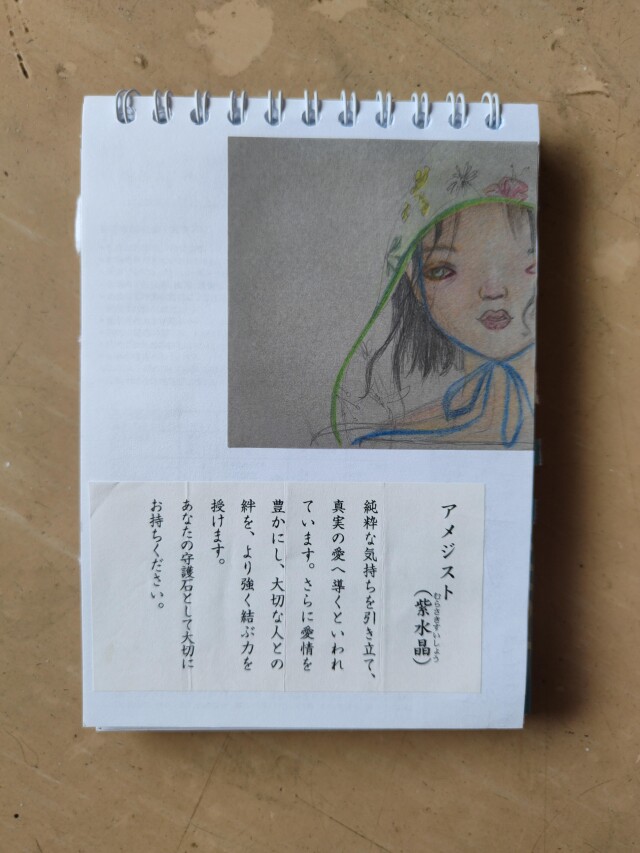 アメジスト
むらさきすいしょう
(紫水晶)
純粋な気持ちを引き立て、
真実の愛へ導くといわれ
ています。さらに愛情を
豊かにし、大切な人との
絆を、より強く結ぶ力を
授けます。
あなたの守護石として大切に
お持ちください。